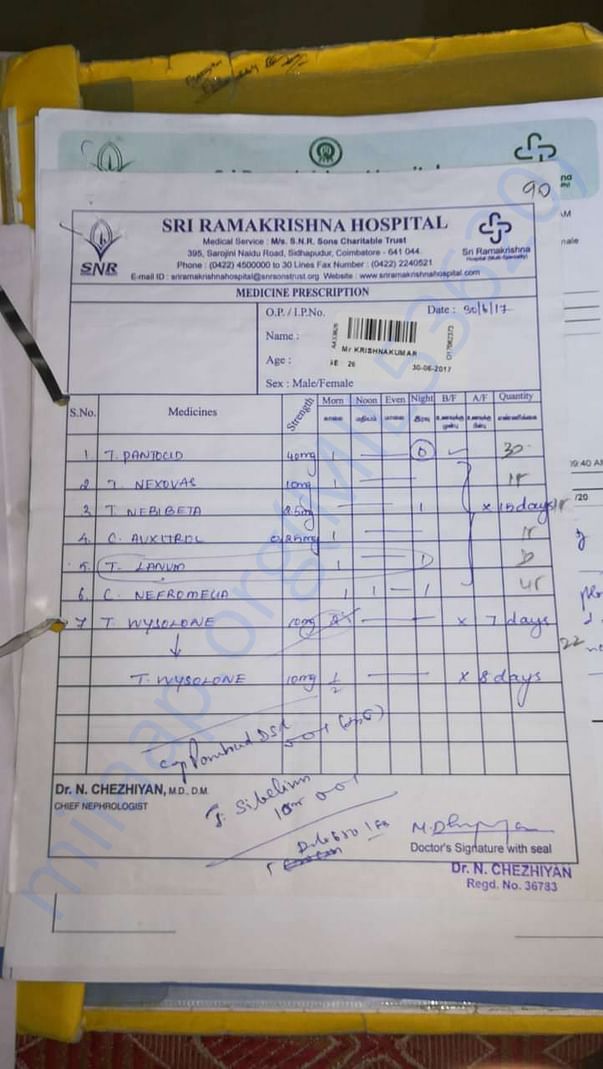 90
SRI RAMAKRISHNA HOSPITAL
Medical Service : M/s. S.N.R. Sons Charitable Trust
395, Sarojini Naidu Road, Sidhapudur, Coimbatore - 641 044.
Phone : (0422) 4500000 to 30 Lines Fax Number : (0422) 2240521
E-mail ID : sriramakrishnahospital@snrsonstrust.org Website : www.sriramakrishnahospital.com
SNR
Sri Ramakrishna
Hospital (Multi-Speciality)
MEDICINE PRESCRIPTION
O.P. / I.P.No. Date : 30/6/17
Name :
Mr KRISHNAKUMAR
Age : 26 30-06-2017
Sex : Male/Female
S.No. Medicines Strength Morn Noon Even Night B/F A/F Quantity
காலை மதியம் மாலை இரவு உணவுக்கு முன்பு உணவுக்கு பின்பு எண்ணிக்கை
1 T. PANTOCID 40mg 1 — 0 ✓ 30
2 T. NEXOVAS 10mg 1 —
3 T. NEBIBETA 2.5mg — 1 x 15 days
4. C. AUXITROL 0.25mg 1 —
5. T. LANUM 1 — 1
6. C. NEFROMEGA 1 1 — 1
7 T. WYSOLONE 10mg — x 7 days
↓
T. WYSOLONE 10mg 1/2 — x 8 days
T. Sibelium
10m 001
Dr. N. CHEZHIYAN, M.D., D.M.
CHIEF NEPHROLOGIST
Doctor's Signature with seal
Dr. N. CHEZHIYAN
Regd. No. 36783